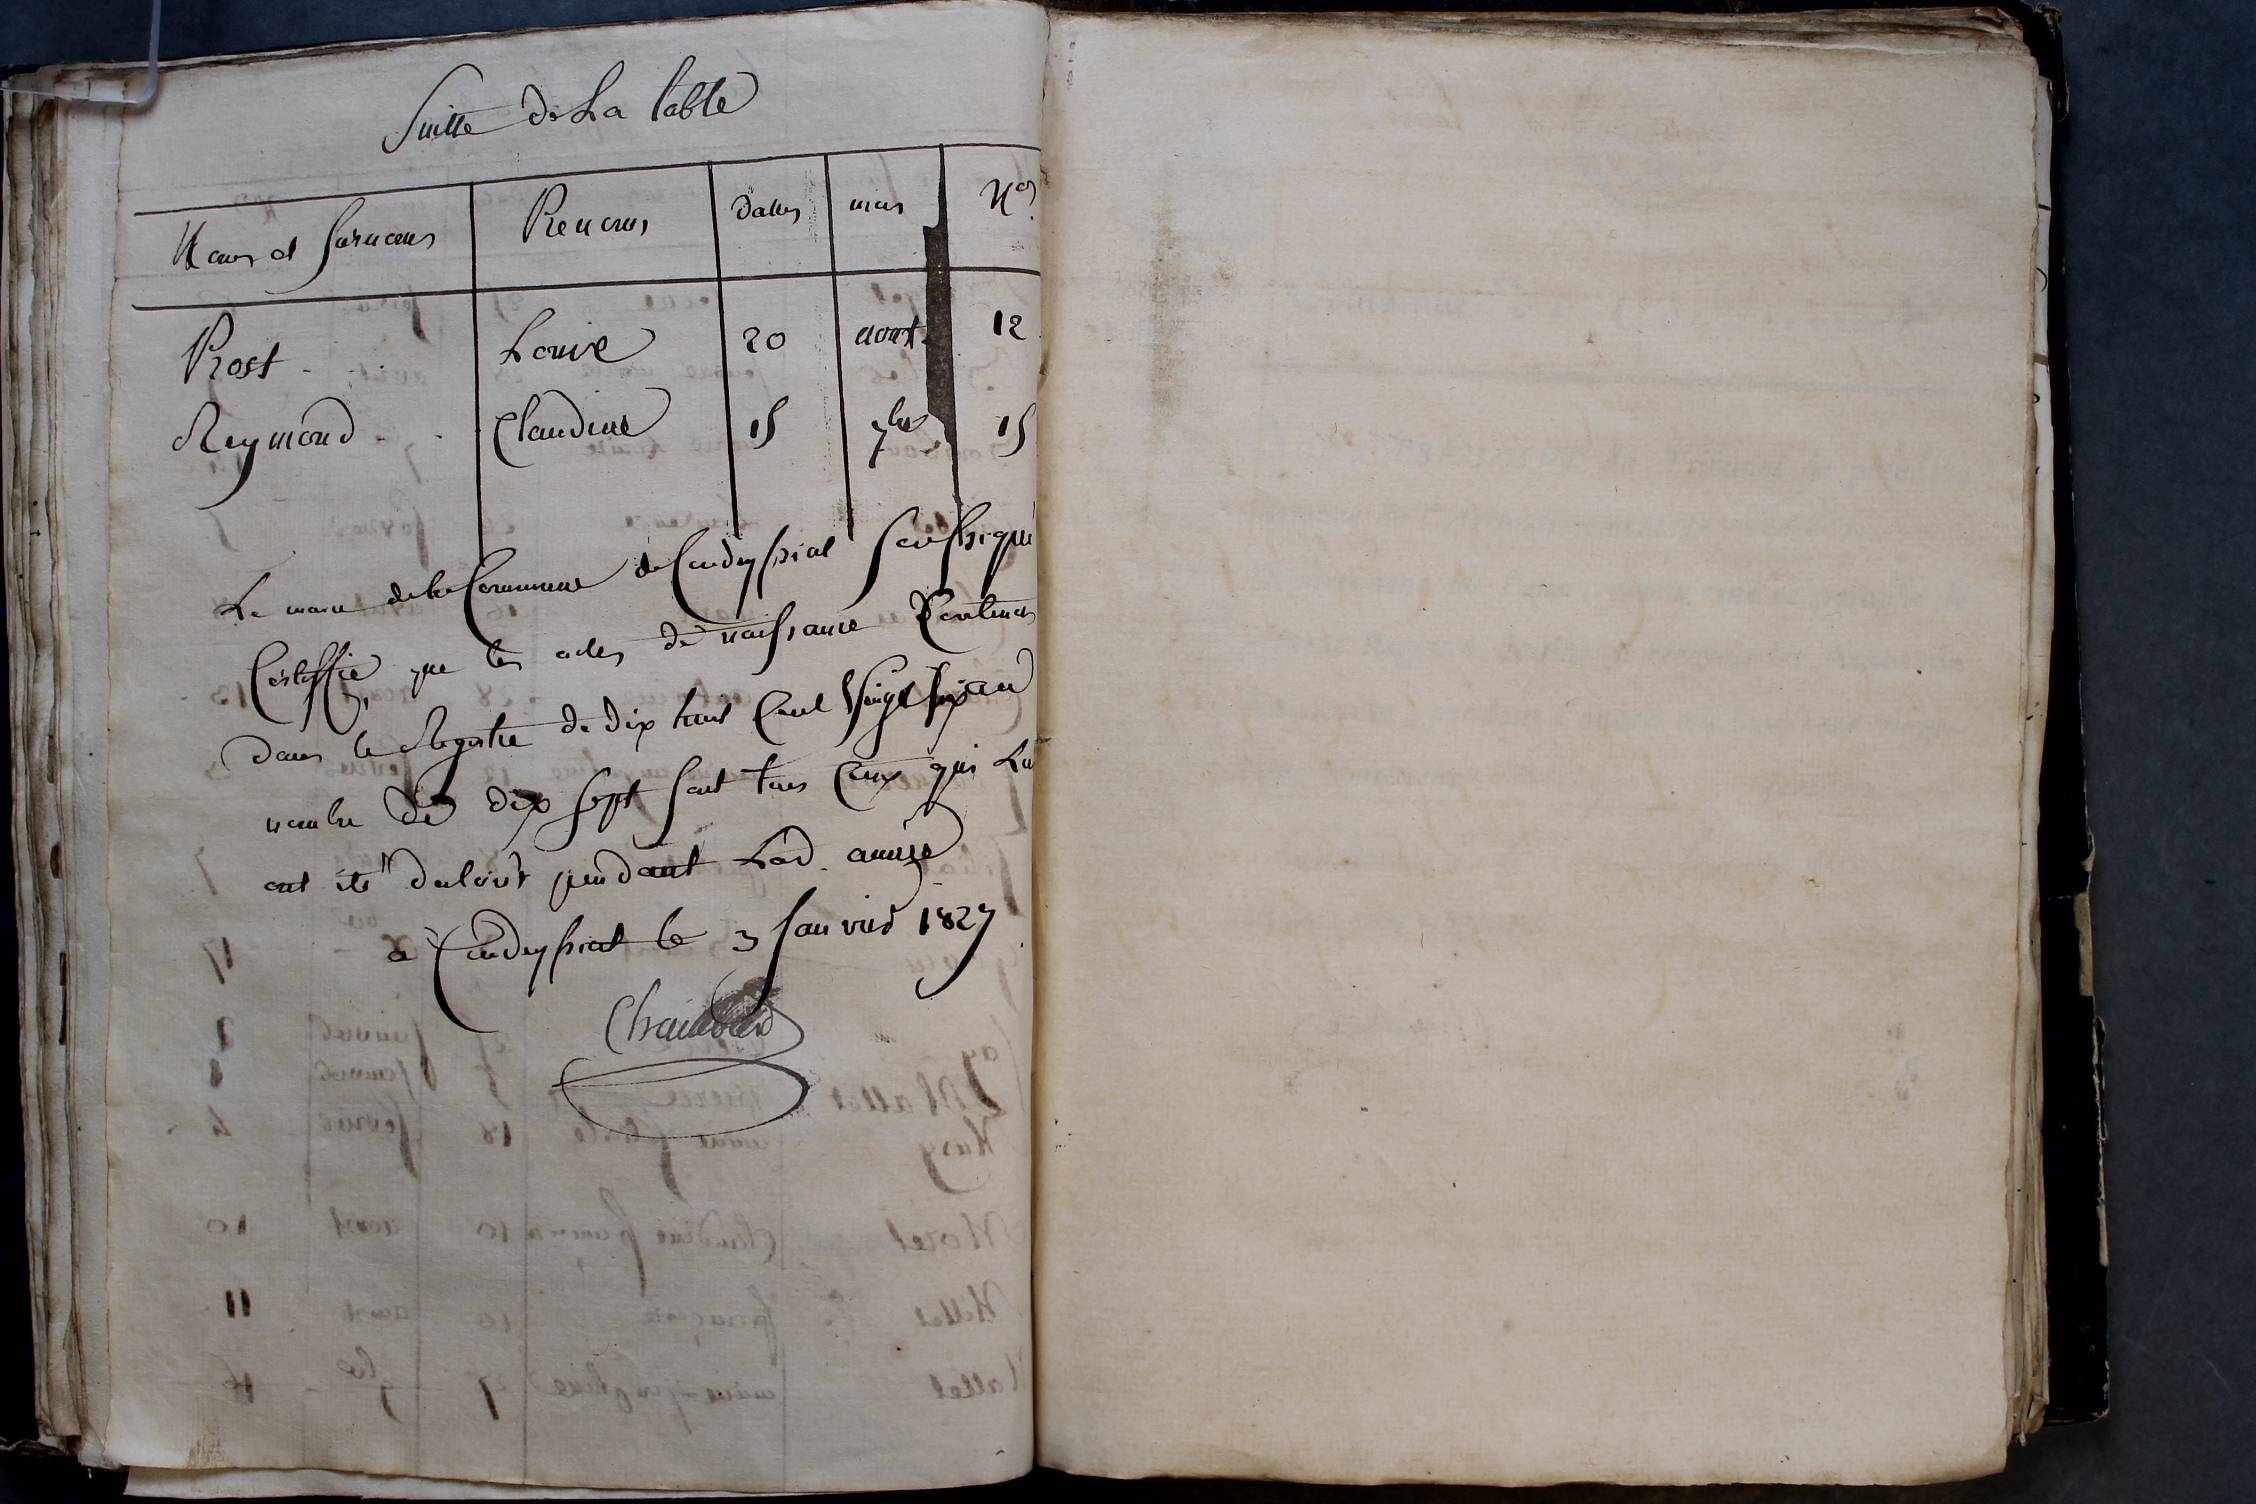 Suitte de La table
Noms et surnoms Prenoms dattes mois Nos
Rost Louise 20 aout 12
Reymond Claudine 15 7bre 15
Le maire de la Commune de Condeyssiat soussigné
Certiffie, que les actes de naissance Contenus
dans le Registre de dix huit Cent Vingt six au
nombre de dix sept sont tous Ceux qui Lui
ont été declaré pendant Lad. année
a Condeyssiat le 3 Janvier 1827